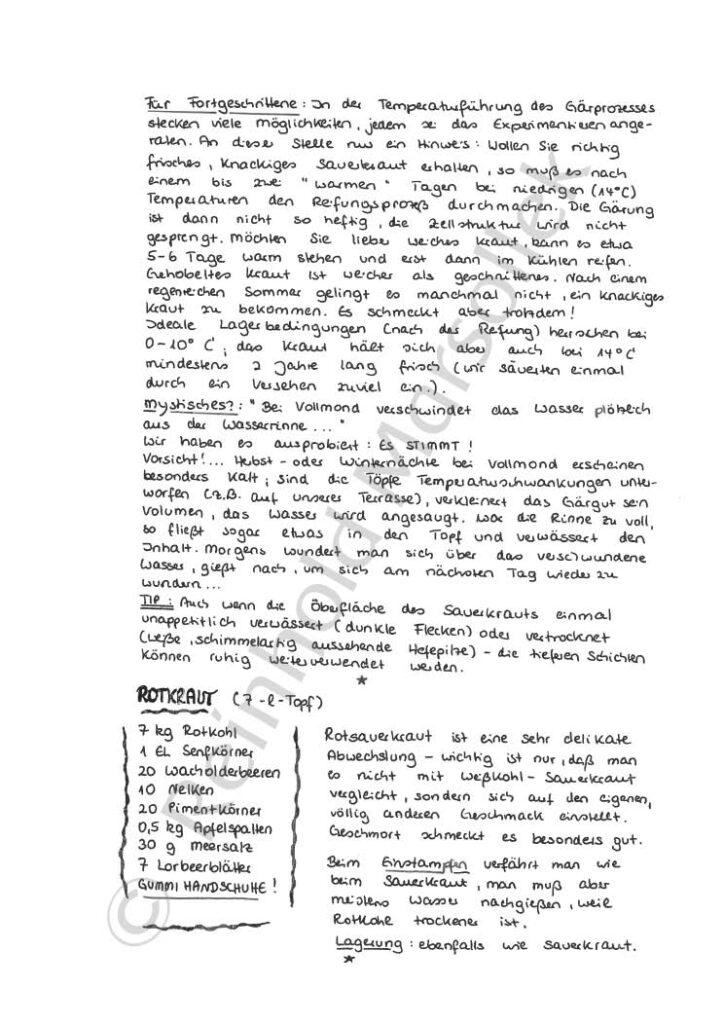 Für Fortgeschrittene: In der Temperaturführung des Gärprozesses
stecken viele Möglichkeiten, jedem sei das Experimentieren ange-
raten. An dieser Stelle nur ein Hinweis: Wollen Sie richtig
frisches, knackiges Sauerkraut erhalten, so muß es nach
einem bis zwei "warmen" Tagen bei niedrigen (14°C)
Temperaturen den Reifungsprozeß durchmachen. Die Gärung
ist dann nicht so heftig, die Zellstruktur wird nicht
gesprengt. Möchten Sie lieber weiches Kraut, kann es etwa
5-6 Tage warm stehen und erst dann im Kühlen reifen.
Gehobeltes Kraut ist weicher als geschnittenes. Nach einem
regenreichen Sommer gelingt es manchmal nicht, ein knackiges
Kraut zu bekommen. Es schmeckt aber trotzdem!
Ideale Lagerbedingungen (nach der Reifung) herrschen bei
0-10° C, das Kraut hält sich aber auch bei 14°C
mindestens 2 Jahre lang frisch (wir säuerten einmal
durch ein Versehen zuviel ein.).
Mystisches?: "Bei Vollmond verschwindet das Wasser plötzlich
aus der Wasserrinne..."
Wir haben es ausprobiert: ES STIMMT!
Vorsicht!... Herbst- oder Winternächte bei Vollmond erscheinen
besonders kalt; sind die Töpfe Temperaturschwankungen unter-
worfen (z.B. auf unserer Terrasse), verkleinert das Gärgut sein
Volumen, das Wasser wird angesaugt. War die Rinne zu voll,
so fließt sogar etwas in den Topf und verwässert den
Inhalt. Morgens wundert man sich über das verschwundene
Wasser, gießt nach, um sich am nächsten Tag wieder zu
wundern...
TIP: Auch wenn die Oberfläche des Sauerkrauts einmal
unappetitlich verwässert (dunkle Flecken) oder vertrocknet
(weiße, schimmelartig aussehende Hefepilze) - die tieferen Schichten
können ruhig weiterverwendet werden.
*
ROTKRAUT (7-l-Topf)
7 kg Rotkohl
1 EL Senfkörner
20 Wacholderbeeren
10 Nelken
20 Pimentkörner
0,5 kg Apfelspalten
30 g Meersalz
7 Lorbeerblätter
GUMMIHANDSCHUHE!
Rotsauerkraut ist eine sehr delikate
Abwechslung - wichtig ist nur, daß man
es nicht mit Weißkohl-Sauerkraut
vergleicht, sondern sich auf den eigenen,
völlig anderen Geschmack einstellt.
Geschmort schmeckt es besonders gut.
Beim Einstampfen verfährt man wie
beim Sauerkraut, man muß aber
meistens Wasser nachgießen, weil
Rotkohl trockener ist.
Lagerung: ebenfalls wie Sauerkraut.
*
© Reinhold Marsollek